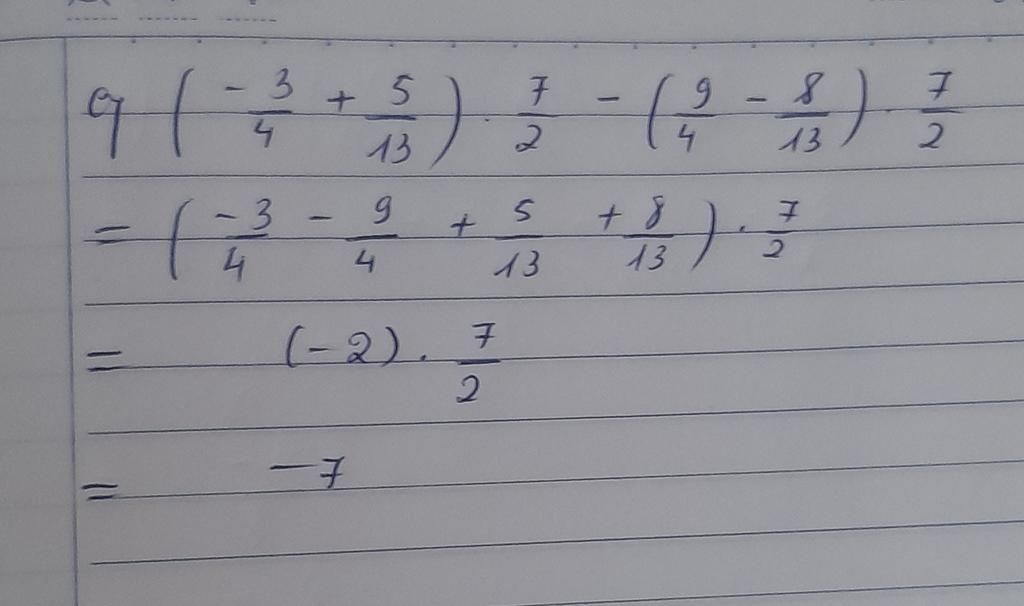 g) (-3/4 + 5/13) . 7/2 - (9/4 - 8/13) . 7/2
= (-3/4 - 9/4 + 5/13 + 8/13) . 7/2
= (-2) . 7/2
= -7